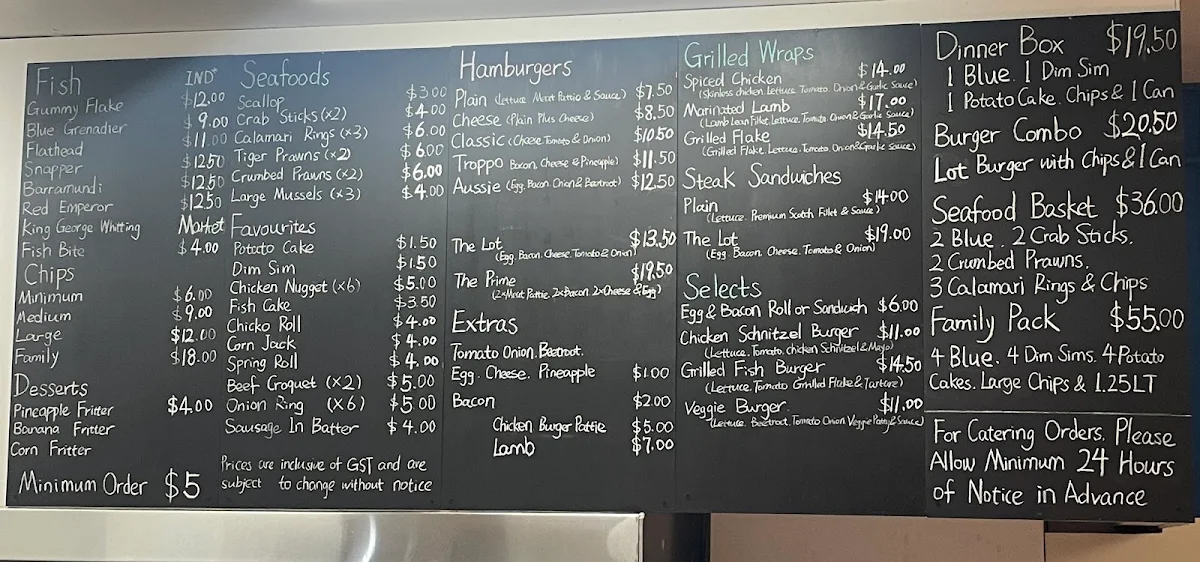 Fish IND
Gummy Flake $12.00
Blue Grenadier $9.00
Flathead $11.00
Snapper $12.50
Barramundi $12.50
Red Emperor $12.50
King George Whitting Market
Fish Bite $4.00
Chips
Minimum $6.00
Medium $9.00
Large $12.00
Family $18.00
Desserts
Pineapple Fritter $4.00
Banana Fritter
Corn Fritter
Minimum Order $5
Seafoods
Scallop $3.00
Crab Sticks (x2) $4.00
Calamari Rings (x3) $6.00
Tiger Prawns (x2) $6.00
Crumbed Prawns (x2) $6.00
Large Mussels (x3) $4.00
Favourites
Potato Cake $1.50
Dim Sim $1.50
Chicken Nugget (x6) $5.00
Fish Cake $3.50
Chicko Roll $4.00
Corn Jack $4.00
Spring Roll $4.00
Beef Croquet (x2) $5.00
Onion Ring (x6) $5.00
Sausage In Batter $4.00
Prices are inclusive of GST and are
subject to change without notice
Hamburgers
Plain (Lettuce Meat Pattie & Sauce) $7.50
Cheese (Plain Plus Cheese) $8.50
Classic (Cheese. Tomato & Onion) $10.50
Troppo Bacon, Cheese & Pineapple) $11.50
Aussie (Egg, Bacon Onion & Beetroot) $12.50
The Lot $13.50
(Egg, Bacon, Cheese, Tomato & Onion)
The Prime $19.50
(2xMeat Pattie, 2xBacon, 2xCheese & Egg)
Extras
Tomato Onion. Beetroot.
Egg. Cheese. Pineapple $1.00
Bacon $2.00
Chicken Burger Pattie $5.00
Lamb $7.00
Grilled Wraps
Spiced Chicken $14.00
(Skinless chicken, Lettuce, Tomato, Onion & Garlic Sauce)
Marinated Lamb $17.00
(Lamb Lean Fillet, Lettuce, Tomato, Onion & Garlic Sauce)
Grilled Flake $14.50
(Grilled Flake, Lettuce, Tomato, Onion & Garlic Sauce)
Steak Sandwiches
Plain $14.00
(Lettuce, Premium Scotch Fillet & Sauce)
The Lot $19.00
(Egg, Bacon, Cheese, Tomato & Onion)
Selects
Egg & Bacon Roll or Sandwich $6.00
Chicken Schnitzel Burger $11.00
(Lettuce, Tomato, Chicken Schnitzel & Mayo)
Grilled Fish Burger $14.50
(Lettuce, Tomato Grilled Flake & Tartare)
Veggie Burger $11.00
(Lettuce, Beetroot, Tomato Onion Veggie Patty & Sauce)
Dinner Box $19.50
1 Blue. 1 Dim Sim
1 Potato Cake. Chips & 1 Can
Burger Combo $20.50
Lot Burger with Chips & 1 Can
Seafood Basket $36.00
2 Blue. 2 Crab Sticks.
2 Crumbed Prawns.
3 Calamari Rings & Chips
Family Pack $55.00
4 Blue. 4 Dim Sims. 4 Potato
Cakes. Large Chips & 1.25LT
For Catering Orders, Please
Allow Minimum 24 Hours
of Notice in Advance